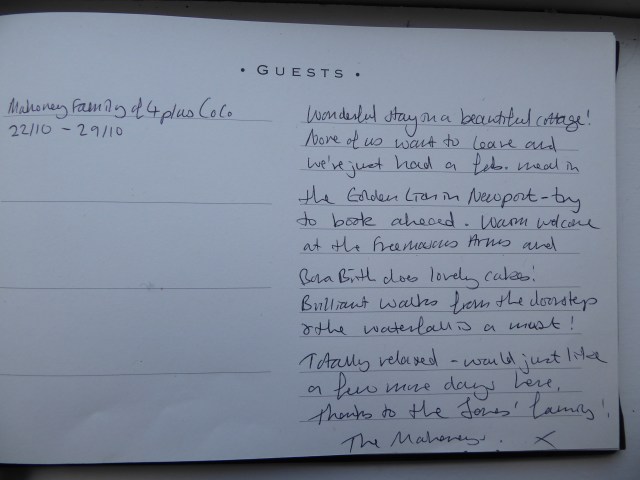 • GUESTS •
Mahoney Family of 4 plus CoCo
22/10 - 29/10
Wonderful stay in a beautiful cottage!
None of us want to leave and
we're just had a fab. meal in
the Golden Lion in Newport - try
to book ahead. Warm welcome
at the Freemasons Arms and
Bara Brith does lovely cakes!
Brilliant walks from the doorstep
& the waterfall is a must!
Totally relaxed - would just like
a few more days here,
thanks to the Jones' family!
The Mahoneys. X